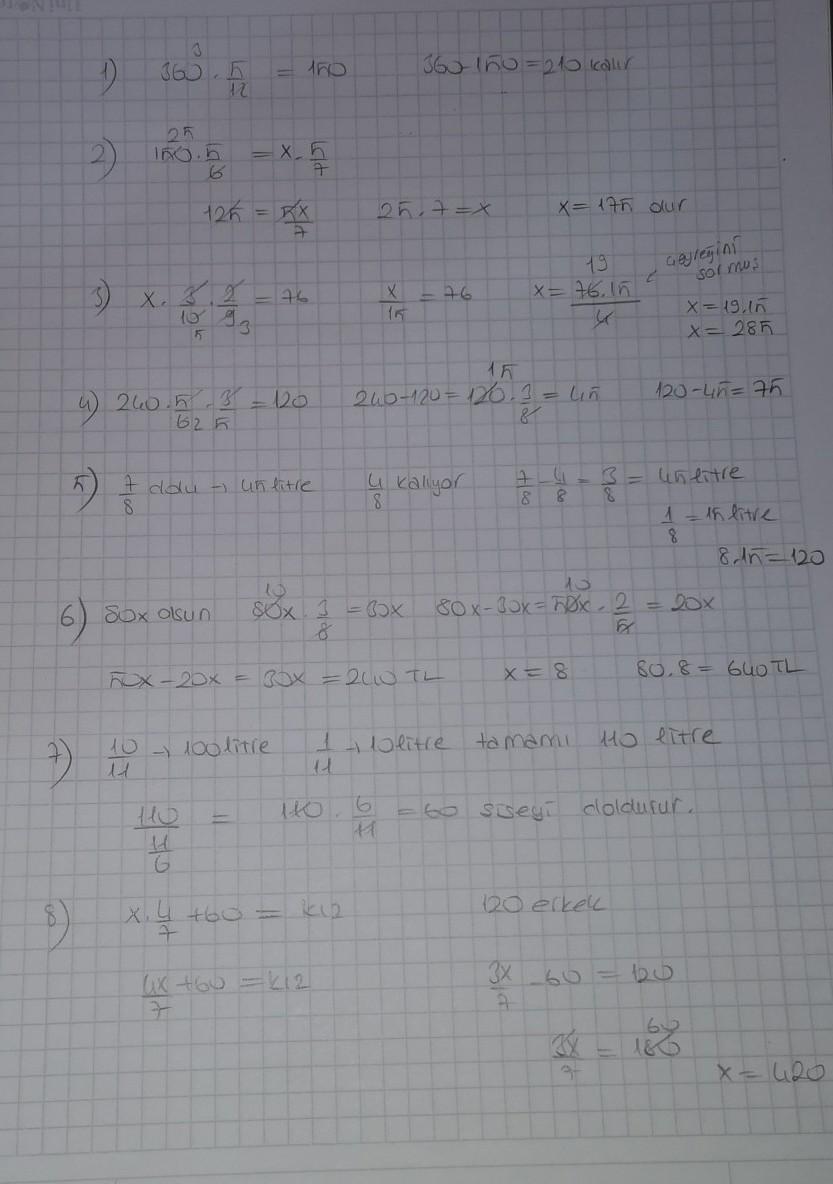 1) 360 . 5/12 = 150    360-150=210 kalır
2) 150 . 5/6 = x . 5/7
125 = 5x/7    25.7=x    x=175 dur
3) x . 3/10 . 2/9 = 76    x/15 = 76    x= 76.15/4    çeyreğini sormuş
x=19.15
x= 285
4) 240 . 5/6 . 3/5 =120    240-120= 120 . 3/8 = 45    120-45=75
5) 7/8 dolu → 45 litre    4/8 kalıyor    7/8 - 4/8 = 3/8 = 45 litre
1/8 = 15 litre
8.15=120
6) 80x olsun    80x . 3/8 =30x    80x-30x= 50x . 2/5 = 20x
50x-20x = 30x = 240 TL    x=8    80.8=640TL
7) 10/11 → 100 litre    1/11 → 10 litre    tamamı 110 litre
110/(11/6) = 110 . 6/11 = 60 şişeyi doldurur.
8) x . 4/7 +60 = kız    120 erkek
4x/7 +60 = kız    3x/7 -60 = 120
3x/7 = 180
x= 420